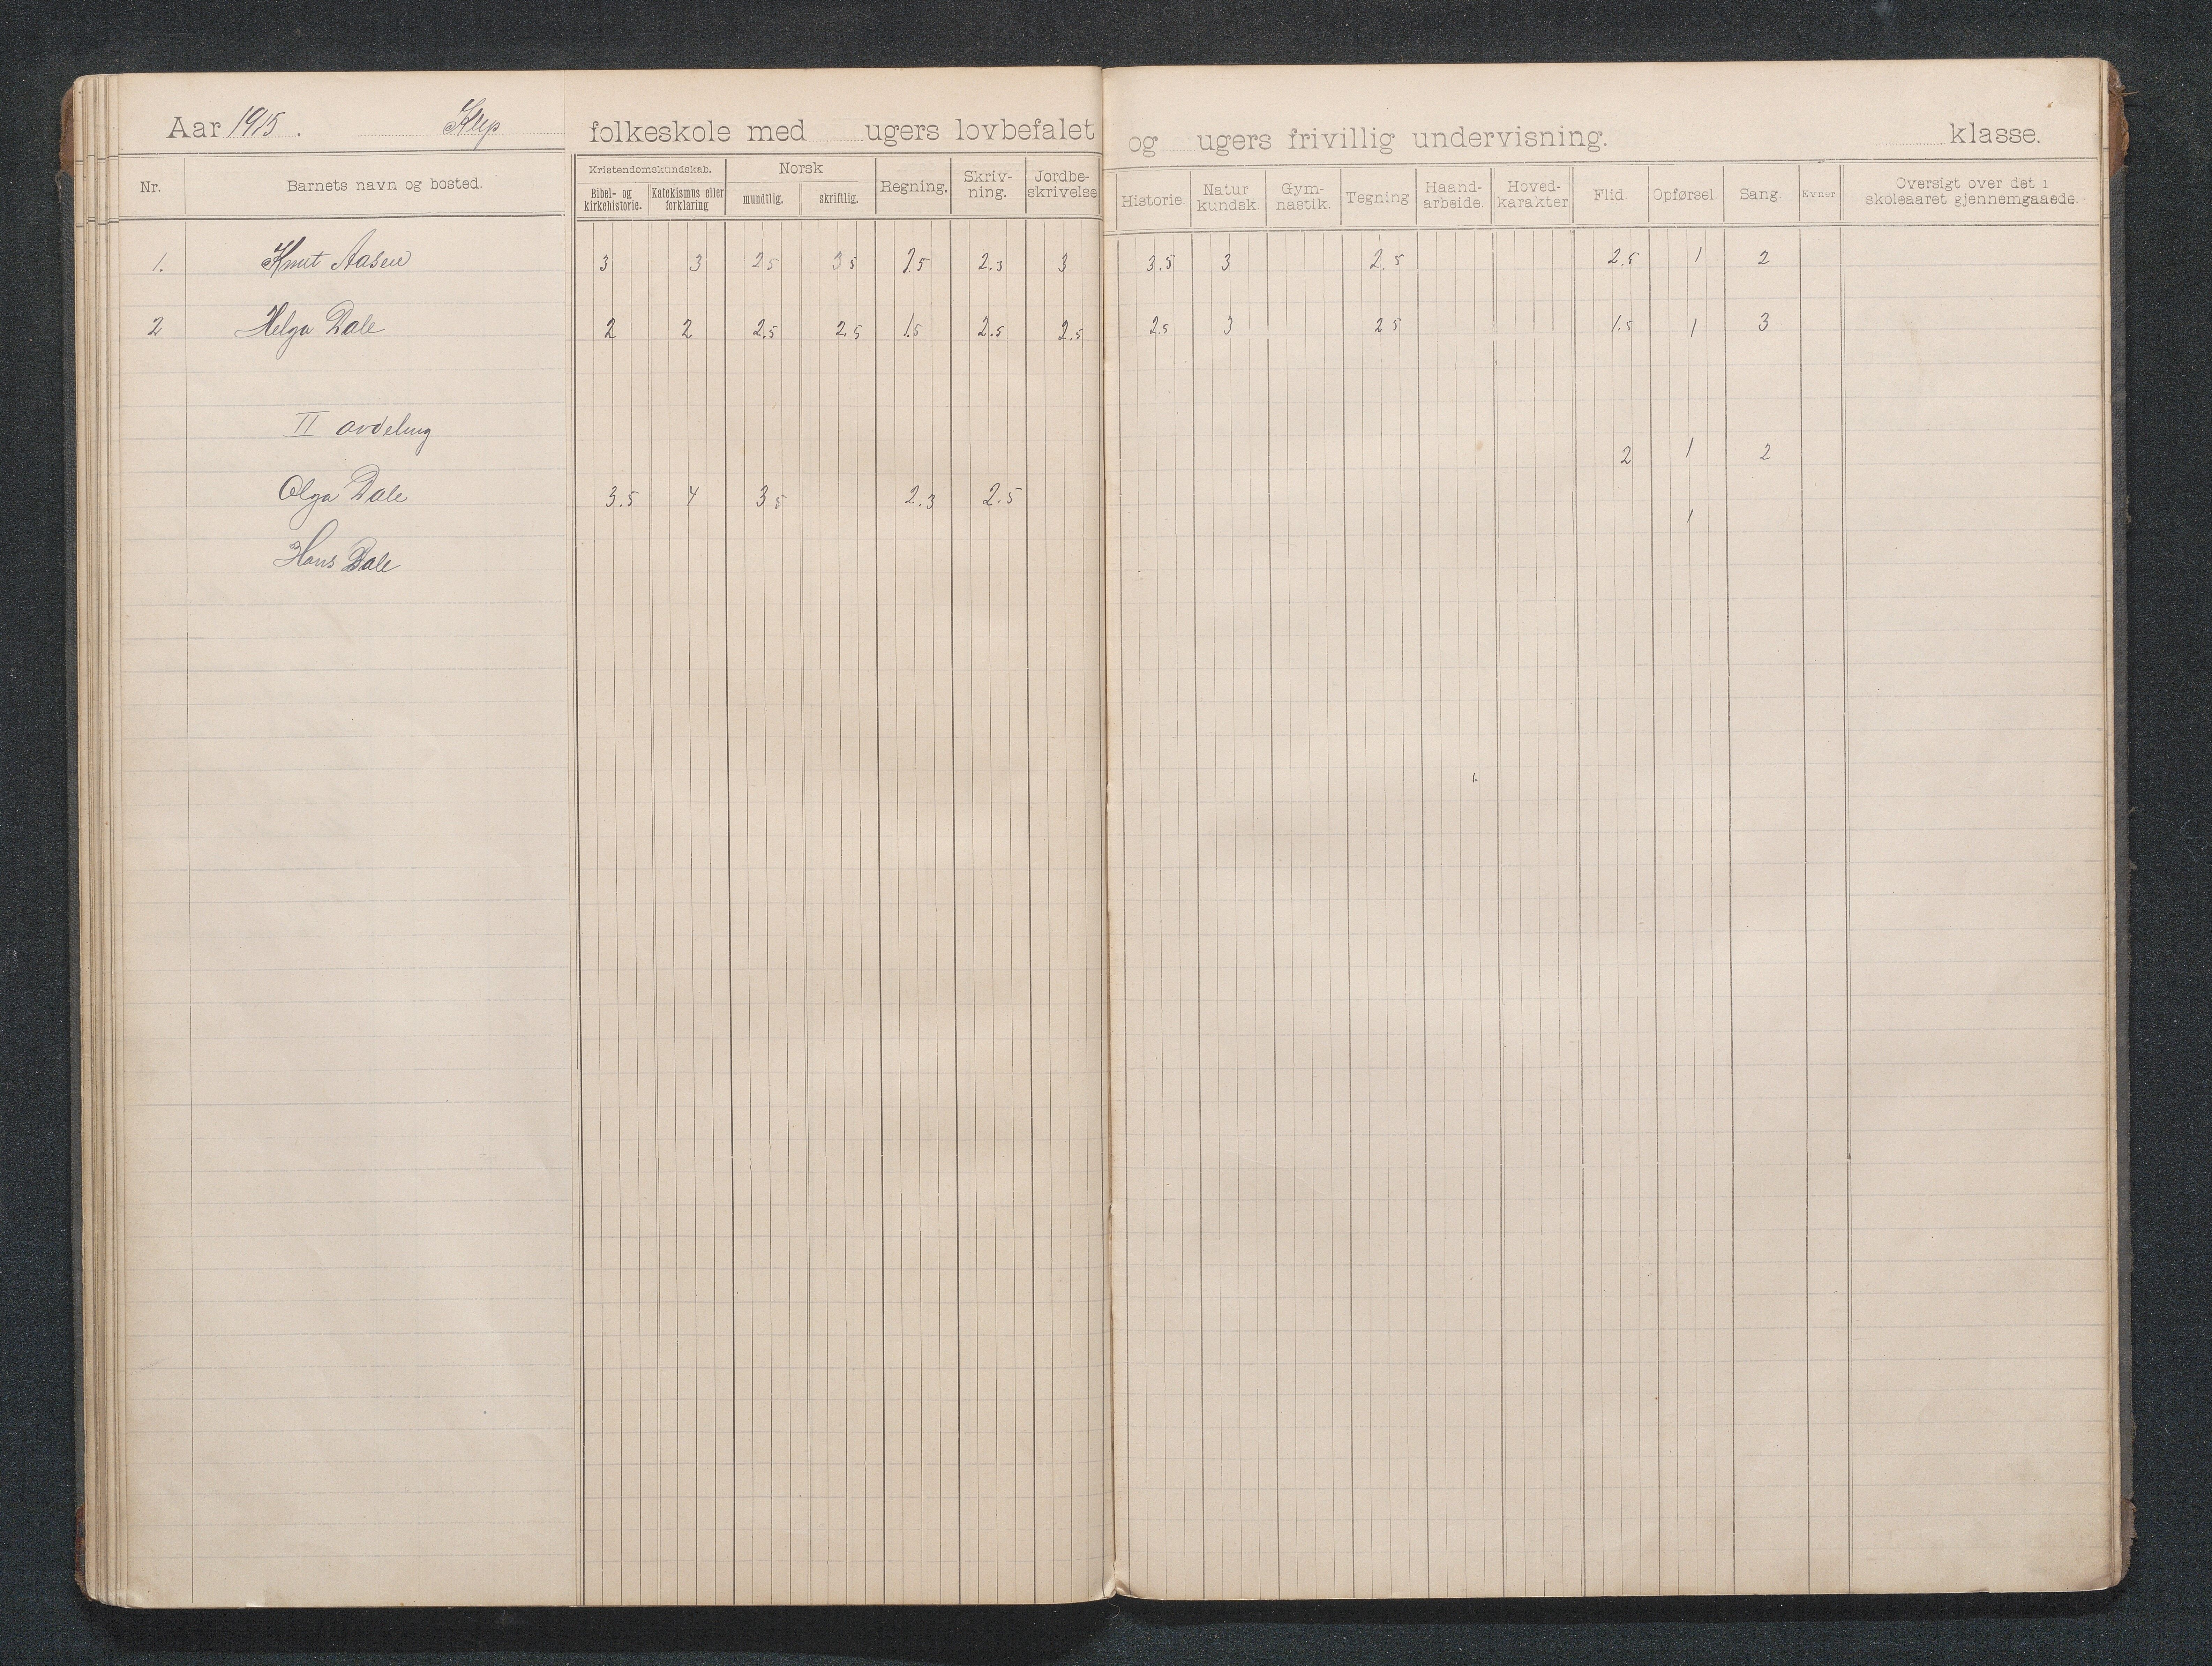 Aar 1915. Klep folkeskole med ugers lovbefalet og ugers frivillig undervisning. klasse.
Nr. Barnets navn og bosted. Kristendomskundskab. Bibel- og kirkehistorie. Katekismus eller forklaring Norsk mundtlig. skriftlig. Regning. Skriv-ning. Jordbe-skrivelse Historie. Natur kundsk. Gym-nastik. Tegning Haand-arbeide. Hoved-karakter Flid. Opførsel. Sang. Evner Oversigt over det i skoleaaret gjennemgaaede.
1. Knut Aasen 3 3 2.5 3.5 2.3 3 3.5 3 2.5 2.5 1 2
2 Helga Dale 2 2 2.5 2.5 1.5 2.5 2.5 2.5 3 2.5 1.5 1 3
II avdeling
2 1 2
Olga Dale 3.5 4 3.5 2.3 2.5
1
Hans Dale